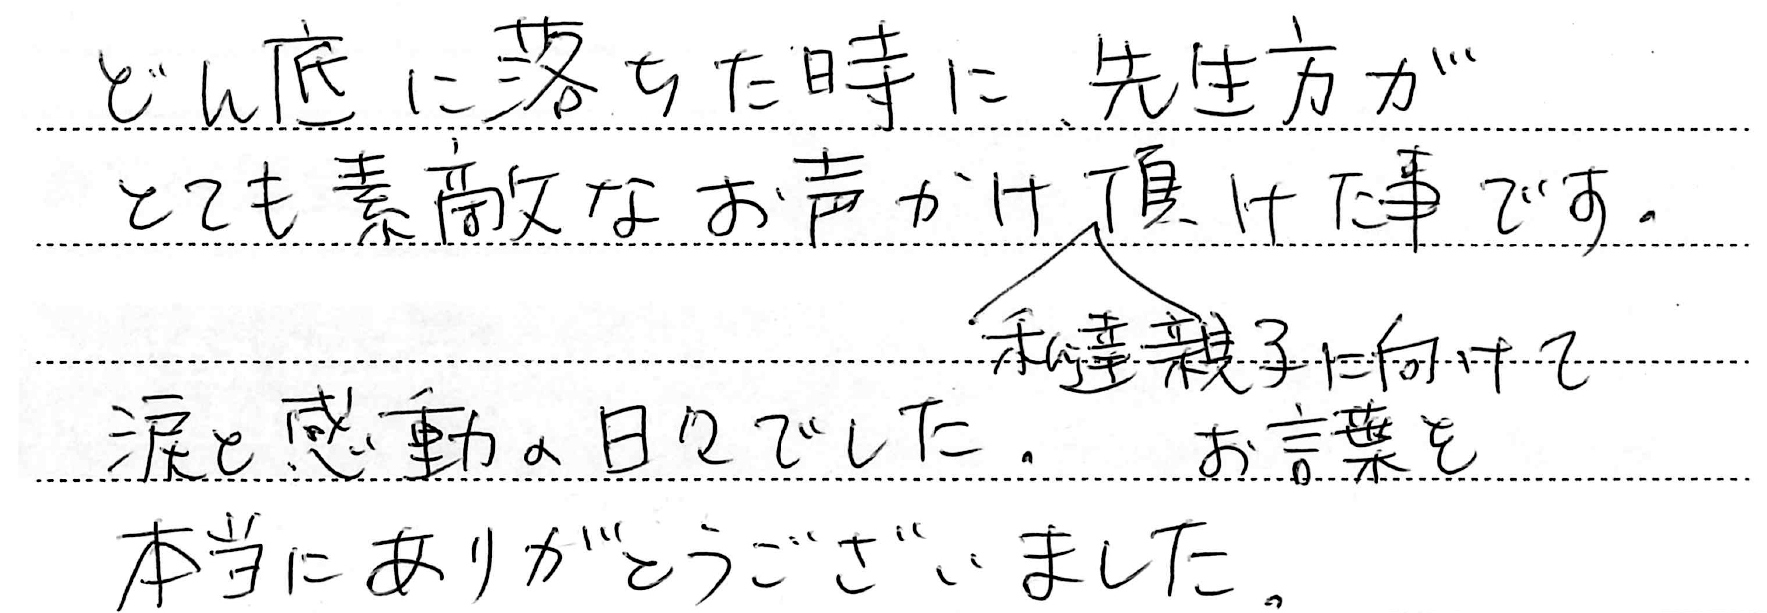 どん底に落ちた時に、先生方が
とても素敵なお声かけ頂けた事です。
私達親子に向けて
お言葉を
涙と感動の日々でした。
本当にありがとうございました。